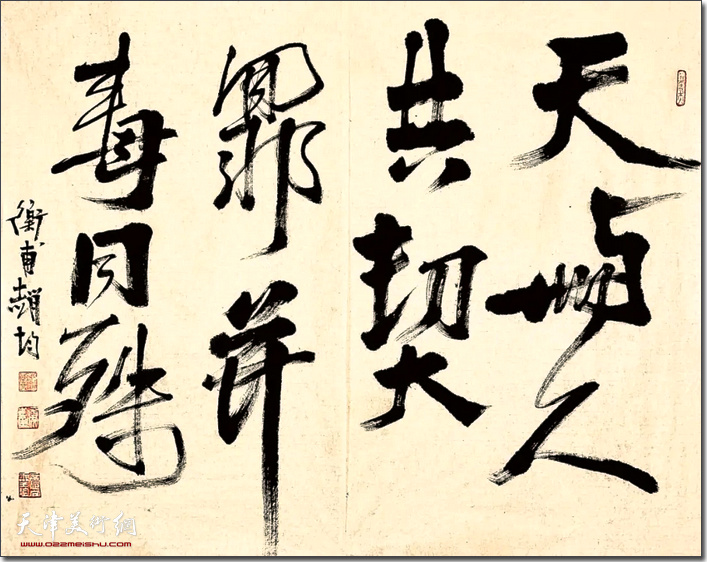 天與人
共契大
并
壽同殊
衡甫趙均
天津美術網
www.022meishu.com